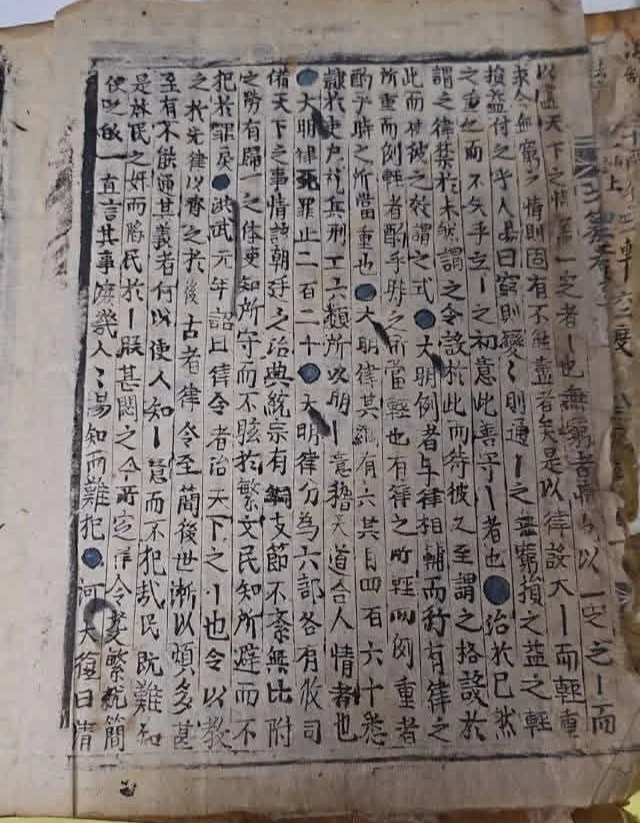 以通天下之情蓋一定者丨也無窮者情也以一定之丨而
求合無窮之情則固有不能盡者矣是以律設大丨而輕重
損益付之乎人易曰窮則變〻則通丨之無窮損之益之輕
之重之而不失乎立丨之初意此善守丨者也●治於已然
謂之律禁於未然謂之令設於此而待彼之至謂之格設於
此而使彼之效謂之式●大明例者与律相輔而行有律之
所重而例輕者酌乎時之所當輕也有律之所輕而例重者
酌乎時之所當重也●大明律其綱有六其目四百六十悉
隷於吏戶礼兵刑工六類所以明丨意稽天道合人情者也
●大明律死罪止二百二十●大明律分為六部各有攸司
備天下之事情該朝廷之治典統宗有綱支節不紊無比附
之勞有歸一之体吏知所守而不眩於繁文民知所避而不
犯於罪戾●洪武元年詔曰律令者治天下之丨也令以教
之於先律以齊之於後古者律令至簡後世漸以煩多甚
至有不能通其義者何以使人知丨意而不犯哉民既難知
是啟民之奸而陷民於丨朕甚閔之今所定律令芟繁就簡
使之啟一直言其事庶幾人〻易知而難犯●河大復曰情